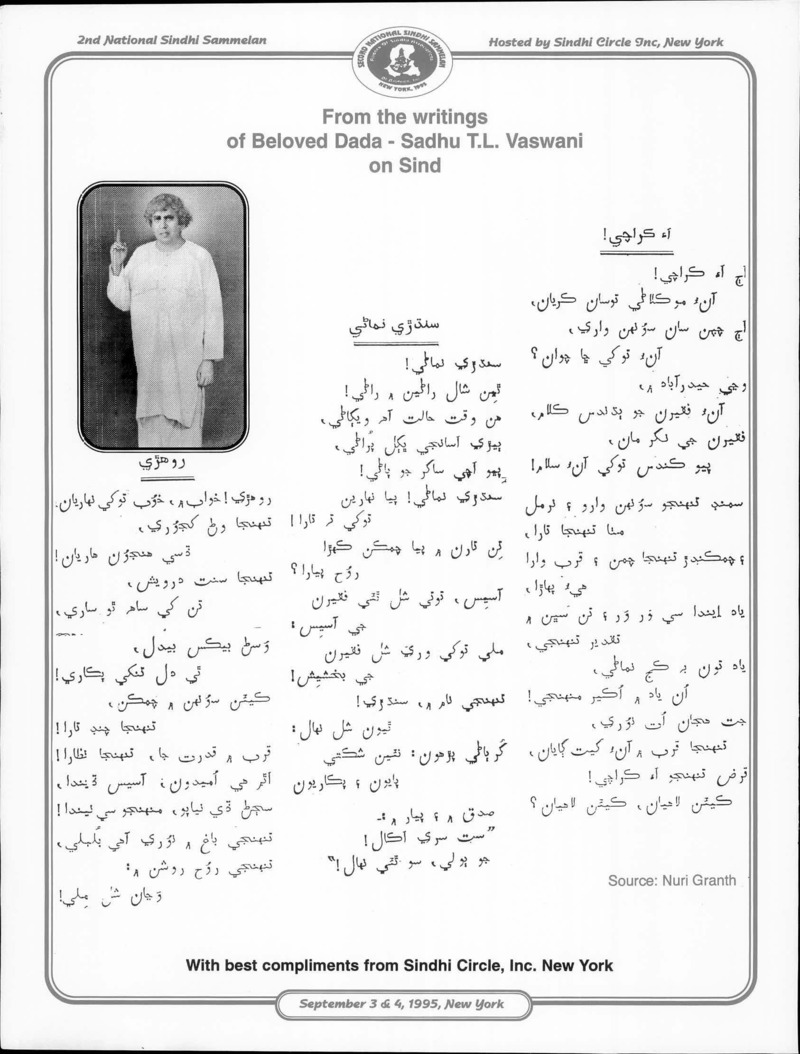 2nd National Sindhi Sammelan
Hosted by Sindhi Circle Inc, New York
SECOND NATIONAL SINDHI SAMMELAN
NEW YORK, 1995
From the writings
of Beloved Dada - Sadhu T.L. Vaswani
on Sind
آء ڪراچي!
اڄ آء ڪراچي!
آنءُ موڪلاڻي توسان ڪريان،
اڄ چمن سان سونهن واري،
آنءُ توکي ڇا چوان؟
وڃي حيدرآباد ۾،
آنءُ فقيرن جو ٻڌندس ڪلام،
فقيرن جي نگر مان،
پيو ڪندس توکي آنءُ سلام!
سمنڊ تنهنجو سونهن وارو ۽ نرمل
مٺا تنهنجا تارا،
۽ چمڪندڙ تنهنجا چمن ۽ قرب وارا
هيءُ پهاڙا،
ياد ايندا سي
تقدير تنهنجي،
ياد تون
اُن ياد ۾ اُڪير منهنجي!
جت هجان اُت نوري،
تنهنجا قرب ۾ آنءُ گيت ڳايان،
قرض تنهنجو آء ڪراچي!
ڪيئن لاهيان، ڪيئن لاهيان؟
سنڌڙي نماڻي
سنڌڙي نماڻي!
ٿين شال راڻين ۾ راڻي!
هن وقت حالت آهہ ويڳاڻي،
ٻيڙي اسانجي ڀڳل پُراڻي،
پيو اچي ساگر جو پاڻي!
سنڌڙي نماڻي! پيا نهارين
توکي ته تارا!
تن تارن ۾ پيا چمڪن ڪهڙا
روُح پيارا؟
آسيس، توتي شل ٿئي فقيرن
جي آسيس:
ملي توکي وريَ شل فقيرن
جي بخشيش!
تنهنجي نام ۾، سنڌڙي!
ٿيون شل نهال:
گرٻاڻي پڙهون: نئين شڪتي
پايون ۽ پڪاريون
صدق ۾ ۽ پيار ۾:-
"ست سري اڪال!
جو ٻولي، سو ٿئي نهال!"
روهڙي
روهڙي! خواب ۾، خوُب توکي نهاريان.
تنهنجا وڻ کجوري،
ڏسي هنجون هاريان!
تنهنجا سنت درويش،
تن کي ساهہ ٿو ساري،
وَسڻ بيڪس بيدل،
ٿي دل تنکي پڪاري!
ڪيئن سونهن ۾ چمڪن،
تنهنجا چنڊ تارا!
قرب ۾ قدرت جا، تنهنجا نظارا!
آهہ هي اُميدون، آسيس ڏيندا،
سڄڻ ڏي نياپو، منهنجو سي نيندا!
تنهنجي باغ ۾ نوُري آهي بُلبلي،
تنهنجي روُح روشن ۾:
وَڃان شل مِلي!
Source: Nuri Granth
With best compliments from Sindhi Circle, Inc. New York
September 3 & 4, 1995, New York